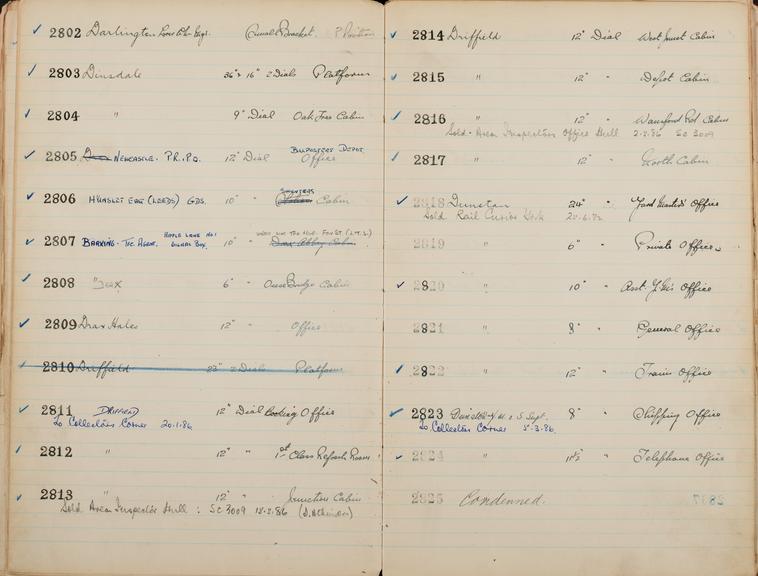 2802 Darlington Loco Bracket.
2803 Dinsdale 36" & 16" 2 Dials Platform
2804 " 9" Dial Oak Tree Cabin
BILLPOSTERS DEPOT
2805 NEWCASTLE. P.R.P.O. 12" Dial Office
SHUNTERS
2806 HUNSLET EAST (LEEDS) GDS. 10" " Cabin
2807 BARKING - TIC. AGENT. 10" " Drax Abbey Cabin
2808 Drax 6" " Ouse Bridge Cabin
2809 Drax Hales 12" " Office
2810 Driffield 23" 2 Dials Platform
2811 DRIFFIELD 12" Dial Booking Office
To Collectors Corner 20.1.86
2812 " 12" " 1st Class Refresh Room
2813 " 12" " Junction Cabin
Sold Area Inspector Hull : SC 3009 12.2.86
2814 Driffield 12" Dial West Junct Cabin
2815 " 12" " Depot Cabin
2816 " 12" " Wansford Rd Cabin
Sold - Area Inspectors Office Hull 2.2.86 SC 3009
2817 " 12" " North Cabin
2818 Dunston 24" " Yard Master's Office
Sold Rail Curios York
2819 " 6" " Private Office
2820 " 10" " Asst. Y. M's Office
2821 " 8" " General Office
2822 " 12" " Train Office
2823 8" " Shipping Office
To Collectors Corner 5-3-86
2824 " " Telephone Office
2825 Condemned.